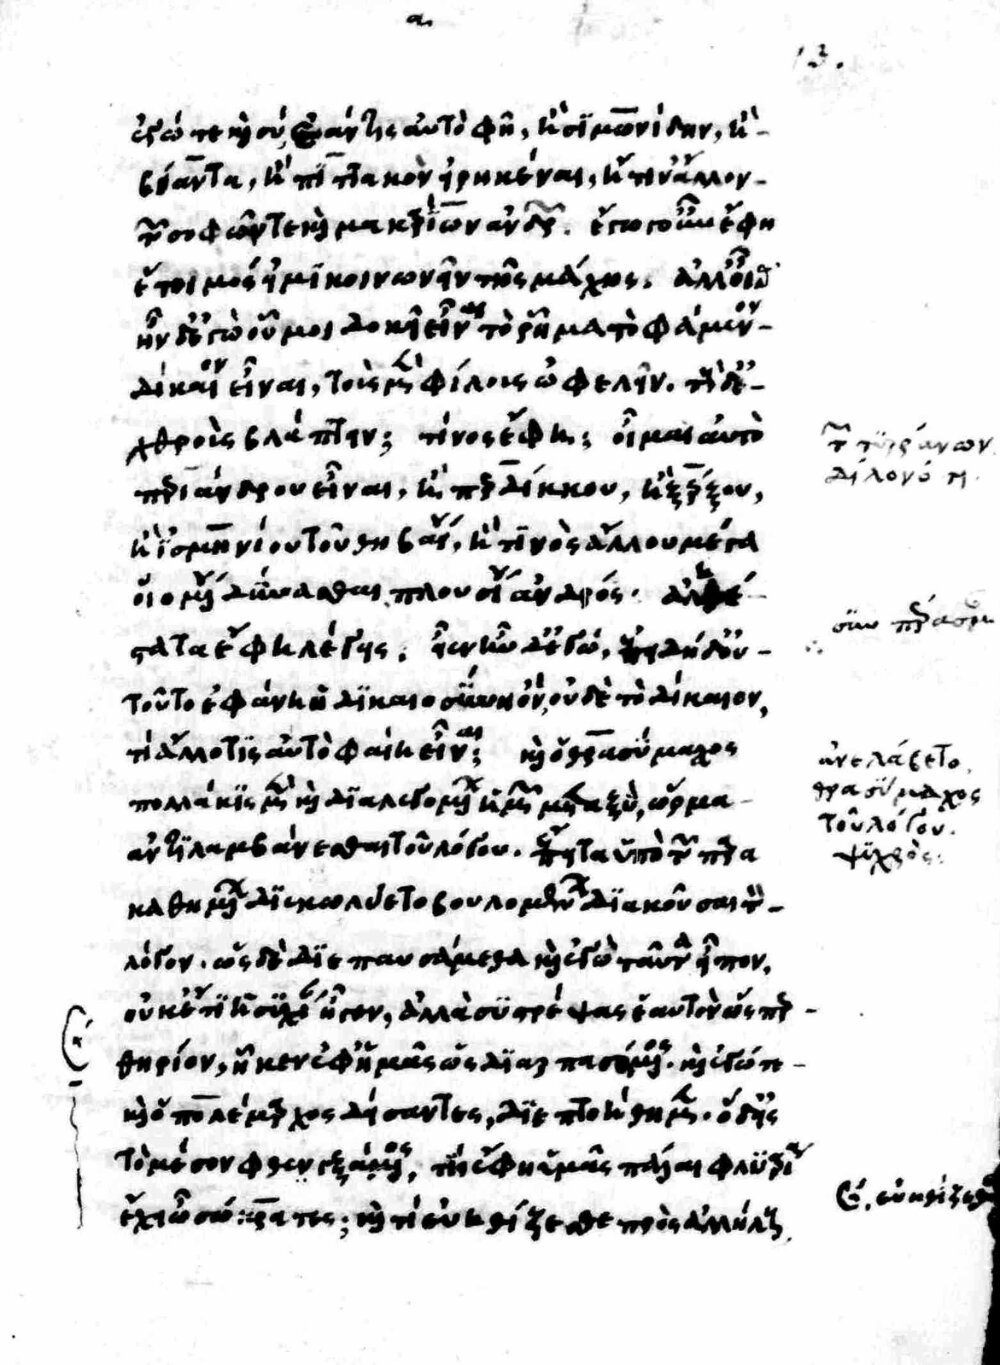 α.
13.
ἐγώ τε καὶ σύ, ἐάν τις αὐτὸ φῆ, ἢ σιμωνίδην, ἢ
βίαντα, ἢ πιττακὸν εἰρηκέναι, ἤ τιν' ἄλλον
τῶν σοφῶν τε καὶ μακαρίων ἀνδρῶν. ἔγωγ' οὖν ἔφη
ἕτοιμός εἰμι κοινωνεῖν τῆς μάχης. ἀλλ' οἶσθα
ἦν δ' ἐγὼ οὗ μοι δοκεῖ εἶναι τὸ ῥῆμα τὸ φάναι
δίκαιον εἶναι, τοὺς μὲν φίλους ὠφελεῖν. τοὺς δ' ἐ
χθροὺς βλάπτειν; τίνος ἔφη; οἶμαι αὐτὸ
περιάνδρου εἶναι, ἢ περδίκκου, ἢ ξέρξου,
ἢ ἰσμηνίου τοῦ θηβαίου, ἤ τινος ἄλλου μέγα
οἰομένου δύνασθαι πλουσίου ἀνδρός. ἀληθέ
στατα ἔφη λέγεις; εἶεν ἦν δ' ἐγώ, ἐπειδὴ δὲ οὐ
τοῦτο ἐφάνη ἡ δικαιοσύνη ὂν, οὐδὲ τὸ δίκαιον,
τί ἂν ἄλλο τις αὐτὸ φαίη εἶναι; καὶ ὁ θρασύμαχος
πολλάκις μὲν καὶ διαλεγομένων ἡμῶν μεταξὺ, ὥρμα
ἀντιλαμβάνεσθαι τοῦ λόγου. ἔπειτα ὑπὸ τῶν παρα
καθημένων διεκωλύετο βουλομένων διακοῦσαι τὸν
λόγον. ὡς δὲ διεπαυσάμεθα καὶ ἐγὼ ταῦτ' εἶπον,
οὐκέτι ἡσυχίαν ἦγεν, ἀλλὰ συστρέψας ἑαυτὸν ὥσπερ
θηρίον, ἧκεν ἐφ' ἡμᾶς ὡς διαρπασόμενος. καὶ ἐγώ τε
καὶ ὁ πολέμαρχος δείσαντες, διεπτοήθημεν. ὁ δ' εἰς
τὸ μέσον φθεγξάμενος, τίς ἔφη ὑμᾶς πάλαι φλυαρία
ἔχει ὦ σώκρατες; καὶ τί εὐηθίζεσθε πρὸς ἀλλήλους
ἀνελάβετο
θρασύμαχος
τοῦ λόγου.
εὐηθίζεσθε